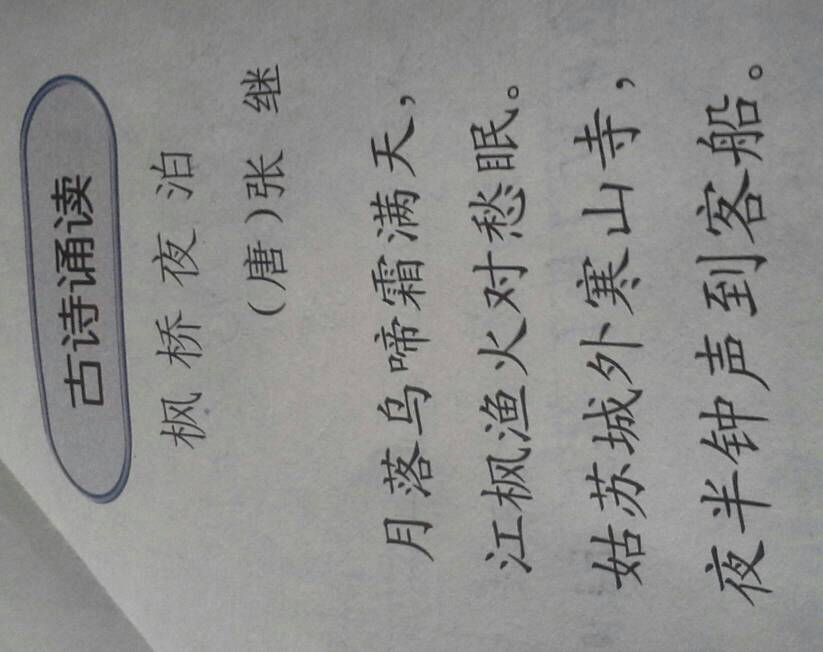 古诗诵读
枫桥夜泊
(唐)张 继
月落乌啼霜满天，
江枫渔火对愁眠。
姑苏城外寒山寺，
夜半钟声到客船。